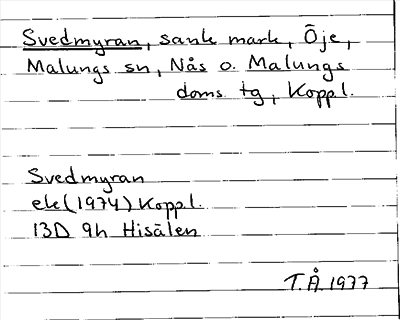 Svedmyran, sank mark, Öje,
Malungs sn, Nås o. Malungs
doms tg, Koppl.
Svedmyran
ek (1974) Koppl.
13D 9h Hisälen
T.Å. 1977